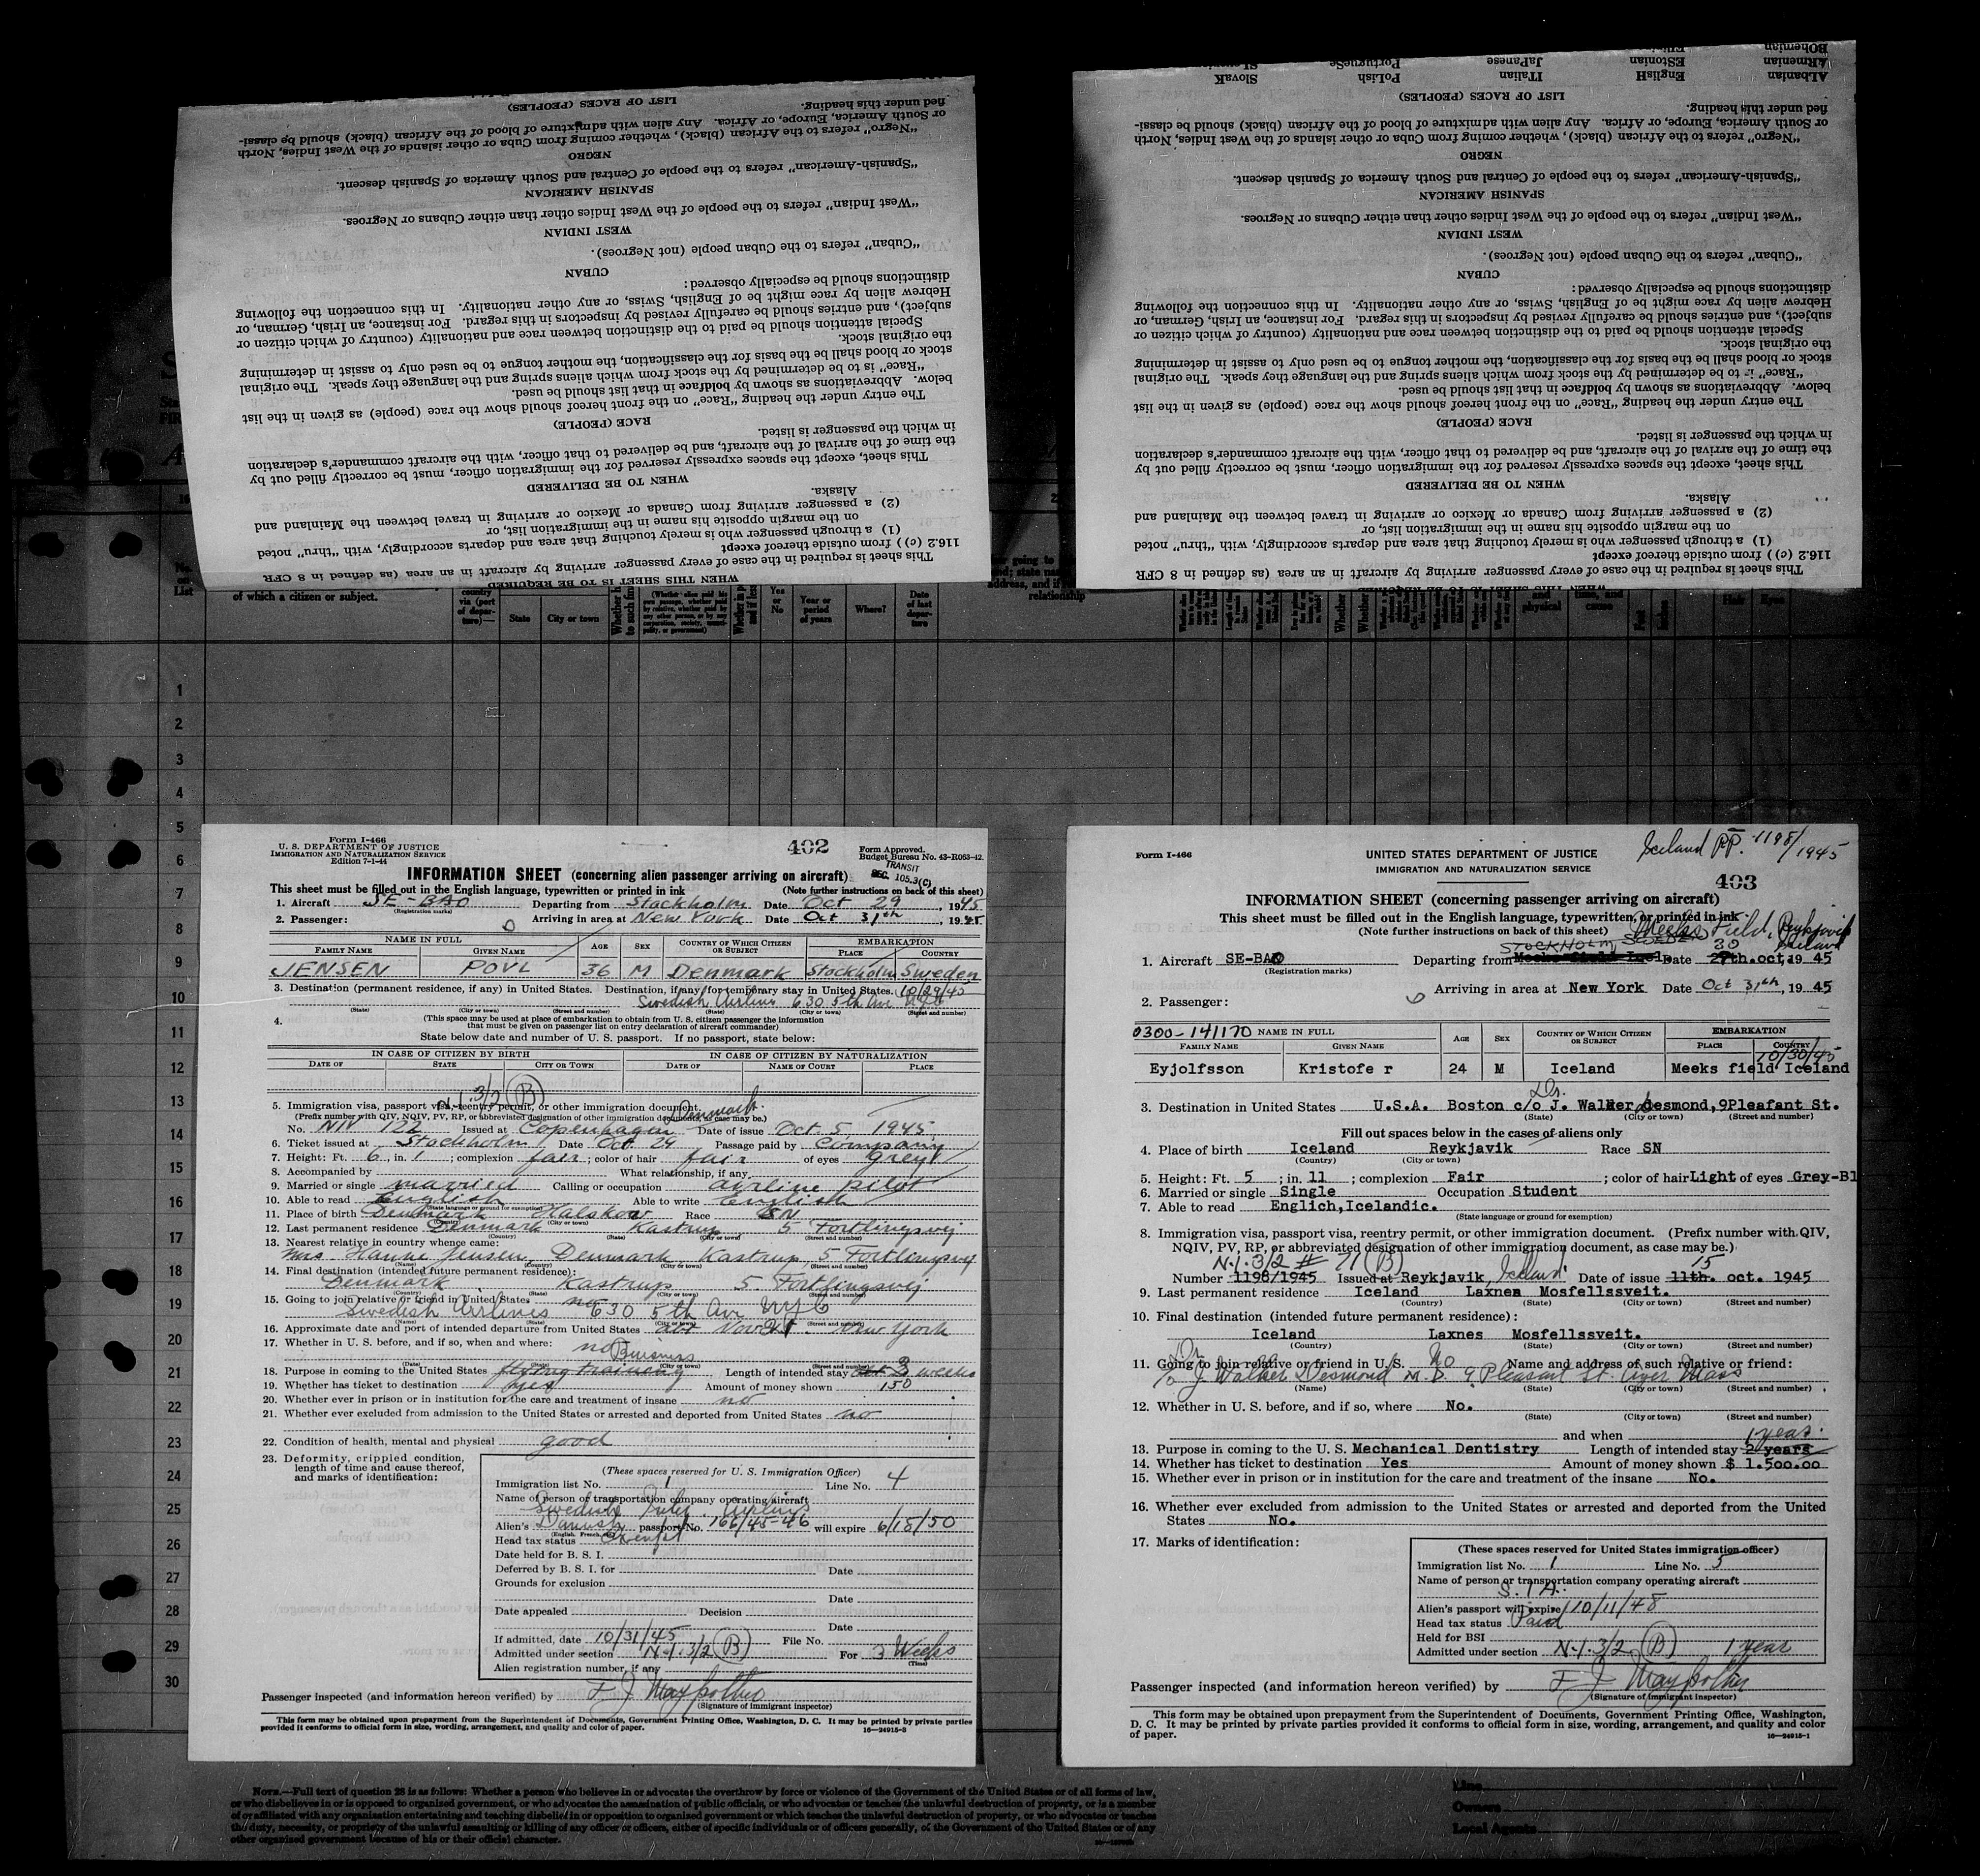 WHEN THIS SHEET IS TO BE REQUIRED
This sheet is required in the case of every passenger arriving by aircraft in an area (as defined in 8 CFR
116.2 (c)) from outside thereof except
(1) a through passenger who is merely touching that area and departs accordingly, with "thru" noted
on the margin opposite his name in the immigration list, or
(2) a passenger arriving from Canada or Mexico or arriving in travel between the Mainland and
Alaska.
WHEN TO BE DELIVERED
This sheet, except the spaces expressly reserved for the immigration officer, must be correctly filled out by
the time of the arrival of the aircraft, and be delivered to that officer, with the aircraft commander's declaration
in which the passenger is listed.
RACE (PEOPLE)
The entry under the heading "Race" on the front hereof should show the race (people) as given in the list
below. Abbreviations as shown by boldface in that list should be used.
"Race" is to be determined by the stock from which aliens spring and the language they speak. The original
stock or blood shall be the basis for the classification, the mother tongue to be used only to assist in determining
the original stock.
Special attention should be paid to the distinction between race and nationality (country of which citizen or
subject), and entries should be carefully revised by inspectors in this regard. For instance, an Irish, German, or
Hebrew alien by race might be of English, Swiss, or any other nationality. In this connection the following
distinctions should be especially observed:
CUBAN
"Cuban" refers to the Cuban people (not Negroes).
WEST INDIAN
"West Indian" refers to the people of the West Indies other than either Cubans or Negroes.
SPANISH AMERICAN
"Spanish-American" refers to the people of Central and South America of Spanish descent.
NEGRO
"Negro" refers to the African (black), whether coming from Cuba or other islands of the West Indies, North
or South America, Europe, or Africa. Any alien with admixture of blood of the African (black) should be classi-
fied under this heading.
LIST OF RACES (PEOPLES)
This sheet is required in the case of every passenger arriving by aircraft in an area (as defined in 8 CFR
116.2 (c)) from outside thereof except
(1) a through passenger who is merely touching that area and departs accordingly, with "thru" noted
on the margin opposite his name in the immigration list, or
(2) a passenger arriving from Canada or Mexico or arriving in travel between the Mainland and
Alaska.
WHEN TO BE DELIVERED
This sheet, except the spaces expressly reserved for the immigration officer, must be correctly filled out by
the time of the arrival of the aircraft, and be delivered to that officer, with the aircraft commander's declaration
in which the passenger is listed.
RACE (PEOPLE)
The entry under the heading "Race" on the front hereof should show the race (people) as given in the list
below. Abbreviations as shown by boldface in that list should be used.
"Race" is to be determined by the stock from which aliens spring and the language they speak. The original
stock or blood shall be the basis for the classification, the mother tongue to be used only to assist in determining
the original stock.
Special attention should be paid to the distinction between race and nationality (country of which citizen or
subject), and entries should be carefully revised by inspectors in this regard. For instance, an Irish, German, or
Hebrew alien by race might be of English, Swiss, or any other nationality. In this connection the following
distinctions should be especially observed:
CUBAN
"Cuban" refers to the Cuban people (not Negroes).
WEST INDIAN
"West Indian" refers to the people of the West Indies other than either Cubans or Negroes.
SPANISH AMERICAN
"Spanish-American" refers to the people of Central and South America of Spanish descent.
NEGRO
"Negro" refers to the African (black), whether coming from Cuba or other islands of the West Indies, North
or South America, Europe, or Africa. Any alien with admixture of blood of the African (black) should be classi-
fied under this heading.
LIST OF RACES (PEOPLES)
ALbanian ENGLisH ITALian POLish SLOVAK
ARMenian ESTONian JAPanese PORTuguese
BOHemian
of which a citizen or subject.
country via (port of depar-ture)—
State
City or town
Yes or No
Year or period of years
Where?
Date of last depar-ture
relationship
1
2
3
4
5
6
7
8
9
10
11
12
13
14
15
16
17
18
19
20
21
22
23
24
25
26
27
28
29
30
Form I-466
U. S. DEPARTMENT OF JUSTICE
IMMIGRATION AND NATURALIZATION SERVICE
Edition 7-1-44
402
Form Approved.
Budget Bureau No. 43-R063-42.
TRANSIT
SEC. 105.3(C)
INFORMATION SHEET (concerning alien passenger arriving on aircraft)
This sheet must be filled out in the English language, typewritten or printed in ink (Note further instructions on back of this sheet)
1. Aircraft SE-BAO Departing from Stockholm Date Oct 29 1945
(Registration marks)
2. Passenger: Arriving in area at New York Date Oct 31th, 1945
NAME IN FULL AGE SEX COUNTRY OF WHICH CITIZEN OR SUBJECT EMBARKATION
FAMILY NAME GIVEN NAME PLACE COUNTRY
JENSEN POVL 36 M Denmark Stockholm Sweden
10/29/45
3. Destination (permanent residence, if any) in United States. Destination, if any, for temporary stay in United States.
Swedish Airlines 630 5th Ave NYC
(State) (City or town) (Street and number) (State) (City or town) (Street and number)
4. (This space may be used at place of embarkation to obtain from U. S. citizen passenger the information
that must be given on passenger list on entry declaration of aircraft commander)
State below date and number of U. S. passport. If no passport, state below:
IN CASE OF CITIZEN BY BIRTH IN CASE OF CITIZEN BY NATURALIZATION
DATE OF STATE CITY OR TOWN DATE OF NAME OF COURT PLACE
3/2 (B)
5. Immigration visa, passport visa, reentry permit, or other immigration document.
(Prefix number with QIV, NQIV, PV, RP, or abbreviated designation of other immigration document, as case may be.)
Denmark
No. NIV 122 Issued at Copenhagen Date of issue Oct. 5, 1945
6. Ticket issued at Stockholm Date Oct 29 Passage paid by Company
7. Height: Ft. 6, in. 1; complexion fair; color of hair fair of eyes grey
8. Accompanied by What relationship, if any
9. Married or single married Calling or occupation airline pilot
10. Able to read English Able to write English
(State language or ground for exemption)
11. Place of birth Denmark Halskov Race SN
(Country) (City or town)
12. Last permanent residence Denmark Kastrup 5 Fortlingsvej
(Country) (State) (City or town) (Street and number)
13. Nearest relative in country whence came:
Mrs. Hanne Jensen, Denmark, Kastrup, 5 Fortlingsvej
(Name) (Country) (State) (City or town) (Street and number)
14. Final destination (intended future permanent residence):
Denmark Kastrup 5 Fortlingsvej
(Country) (State) (City or town) (Street and number)
15. Going to join relative or friend in United States no
Swedish Airlines 630 5th Av NYC
(Name) (State) (City or town) (Street and number)
16. Approximate date and port of intended departure from United States Nov 21. New York
17. Whether in U. S. before, and if so, when and where: no
Business
(Date) (State) (City or town) (Street and number)
18. Purpose in coming to the United States flying training Length of intended stay 3 weeks
19. Whether has ticket to destination yes Amount of money shown 150
20. Whether ever in prison or in institution for the care and treatment of insane no
21. Whether ever excluded from admission to the United States or arrested and deported from United States no
22. Condition of health, mental and physical good
23. Deformity, crippled condition,
length of time and cause thereof,
and marks of identification:
(These spaces reserved for U. S. Immigration Officer)
Immigration list No. 1 Line No. 4
Name of person of transportation company operating aircraft
Swedish Airlines
Alien's Danish passport No. 166/45-46 will expire 6/18/50
Head tax status Exempt
Date held for B. S. I.
Deferred by B. S. I. for Date
Grounds for exclusion
Date
Date appealed Decision
Date
If admitted, date 10/31/45 File No.
Admitted under section N-1.3/2 (B) For 3 Weeks
(Time)
Alien registration number, if any
Passenger inspected (and information hereon verified) by F J
(Signature of immigrant inspector)
This form may be obtained upon prepayment from the Superintendent of Documents, Government Printing Office, Washington, D. C. It may be printed by private parties
provided it conforms to official form in size, wording, arrangement, and quality and color of paper. 16—24915-3
Form I-466
UNITED STATES DEPARTMENT OF JUSTICE
IMMIGRATION AND NATURALIZATION SERVICE
Iceland PP. 1198/1945
403
INFORMATION SHEET (concerning passenger arriving on aircraft)
This sheet must be filled out in the English language, typewritten, or printed in ink
(Note further instructions on back of this sheet)
Meeks Field, Reykjavik
STOCKHOLM SWEDEN 30 Iceland
1. Aircraft SE-BAO Departing from Meeks field Icel. Date 29th.oct, 19 45
(Registration marks)
Arriving in area at New York Date Oct 31th, 19 45
2. Passenger:
0300-141170 NAME IN FULL AGE SEX COUNTRY OF WHICH CITIZEN OR SUBJECT EMBARKATION
FAMILY NAME GIVEN NAME PLACE COUNTRY
10/30/45
Eyjolfsson Kristofe r 24 M Iceland Meeks field Iceland
Dr.
3. Destination in United States U.S.A. Boston c/o J. Walker Desmond,9Pleafant St.
(State) (City or town)
Fill out spaces below in the cases of aliens only
4. Place of birth Iceland Reykjavik Race SN
(Country) (City or town)
5. Height: Ft. 5; in. 11; complexion Fair; color of hair Light of eyes Grey-Bl
6. Married or single Single Occupation Student
7. Able to read Englich,Icelandic.
(State language or ground for exemption)
8. Immigration visa, passport visa, reentry permit, or other immigration document. (Prefix number with QIV,
NQIV, PV, RP, or abbreviated designation of other immigration document, as case may be.)
N-1.3/2 # 71 (B) 15
Number 1198/1945 Issued at Reykjavik, Iceland. Date of issue 11th. oct. 1945
9. Last permanent residence Iceland Laxnes Mosfellssveit.
(Country) (State) (City or town) (Street and number)
10. Final destination (intended future permanent residence):
Iceland Laxnes Mosfellssveit.
(Country) (State) (City or town) (Street and number)
11. Going to join relative or friend in U. S. No Name and address of such relative or friend:
Dr.
c/o J Walker Desmond M.D. 9 Pleasant St. Ayer Mass
(Name) (State) (City or town) (Street and number)
12. Whether in U. S. before, and if so, where No.
(State) (City or town) (Street and number)
and when
1 year.
13. Purpose in coming to the U. S. Mechanical Dentistry Length of intended stay 2 years
14. Whether has ticket to destination Yes Amount of money shown $ 1.500.00
15. Whether ever in prison or in institution for the care and treatment of the insane No.
16. Whether ever excluded from admission to the United States or arrested and deported from the United
States No.
17. Marks of identification:
(These spaces reserved for United States immigration officer)
Immigration list No. 1 Line No. 5
Name of person or transportation company operating aircraft
S.I.A.
Alien's passport will expire 10/11/48
Head tax status Paid
Held for BSI
Admitted under section N-1.3/2 (B) 1 year
Passenger inspected (and information hereon verified) by F J
(Signature of immigrant inspector)
This form may be obtained upon prepayment from the Superintendent of Documents, Government Printing Office, Washington,
D. C. It may be printed by private parties provided it conforms to official form in size, wording, arrangement, and quality and color
of paper. 16—24915-1
NOTE.—Full text of question 28 is as follows: Whether a person who believes in or advocates the overthrow by force or violence of the Government of the United States or of all forms of law,
or who disbelieves in or is opposed to organized government, or who advocates the assassination of public officials, or who advocates or teaches the unlawful destruction of property, or is a member
of or affiliated with any organization entertaining and teaching disbelief in or opposition to organized government or which teaches the unlawful destruction of property, or who advocates or teaches
the duty, necessity, or propriety of the unlawful assaulting or killing of any officer or officers, either of specific individuals or of officers generally, of the Government of the United States or of any
other organized government because of his or their official character.
Line
Owners
Local Agents